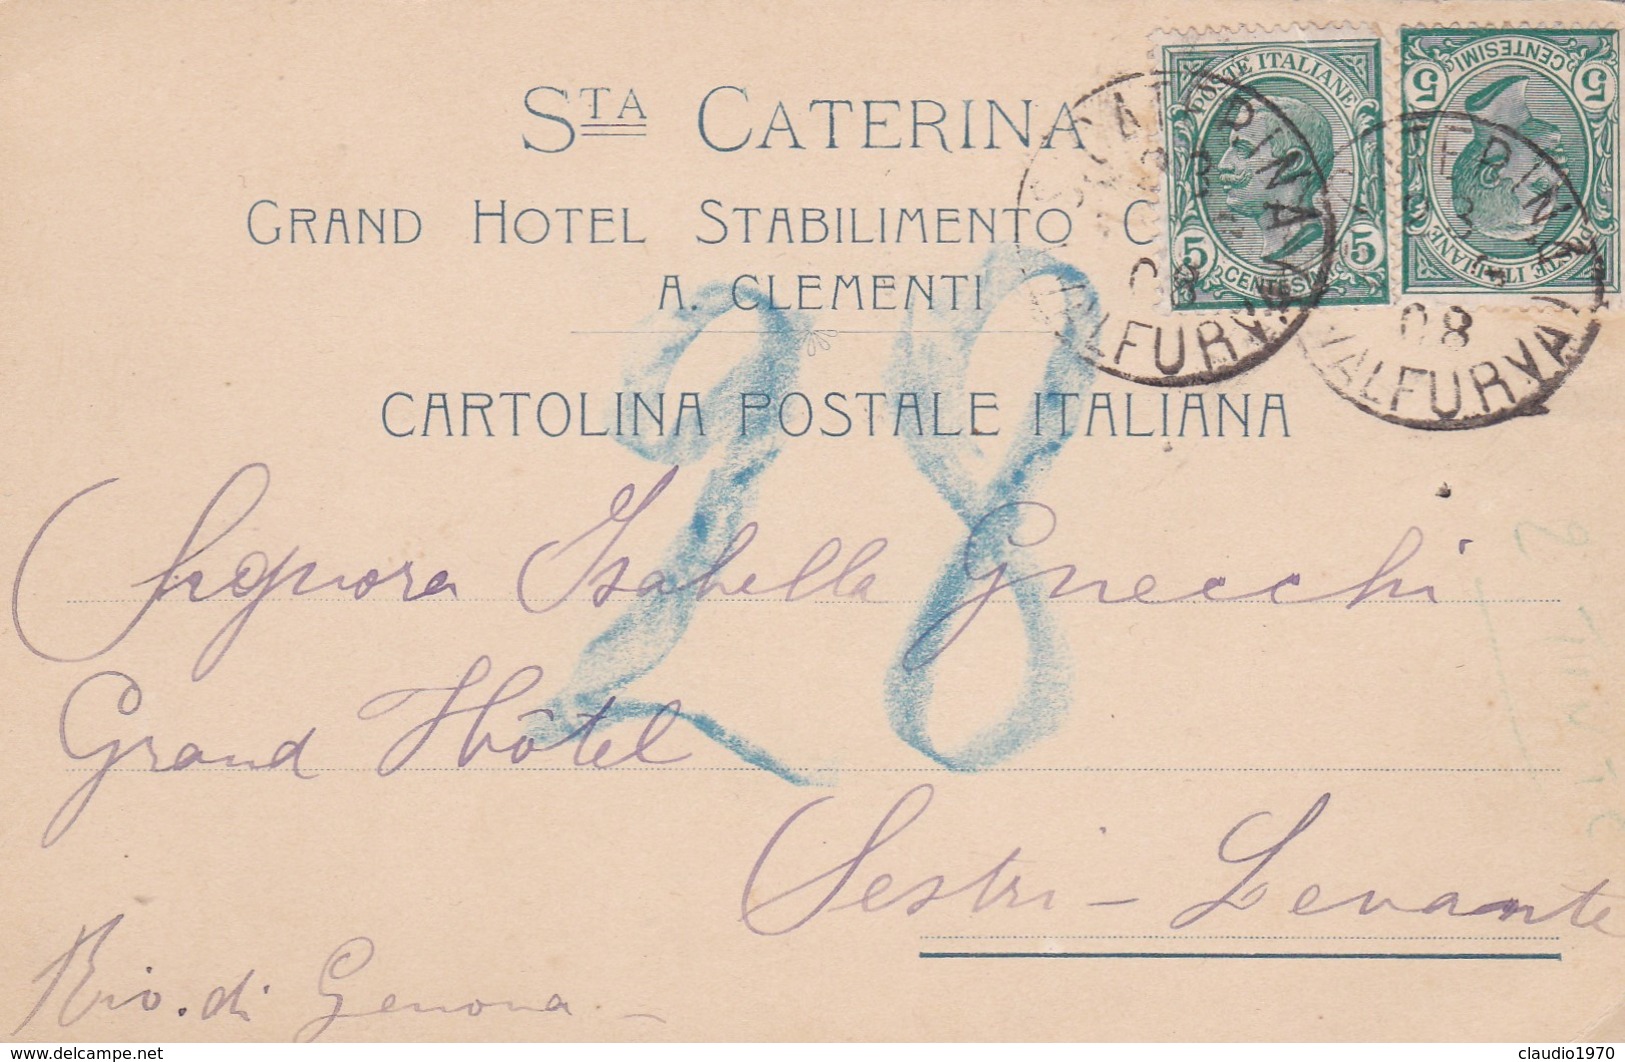 STA CATERINA
GRAND HOTEL STABILIMENTO C
A. CLEMENTI
CARTOLINA POSTALE ITALIANA
POSTE ITALIANE
5 5
CENTESIMI
POSTE ITALIANE
5 5
CENTESIMI
S. CATERINA
08
VALFURVA
CATERINA
08
VALFURVA
28
Signora Isabella Gnecchi
Grand Hôtel
Sestri - Levante
Riv. di Genova -
delcampe.net
claudio1970